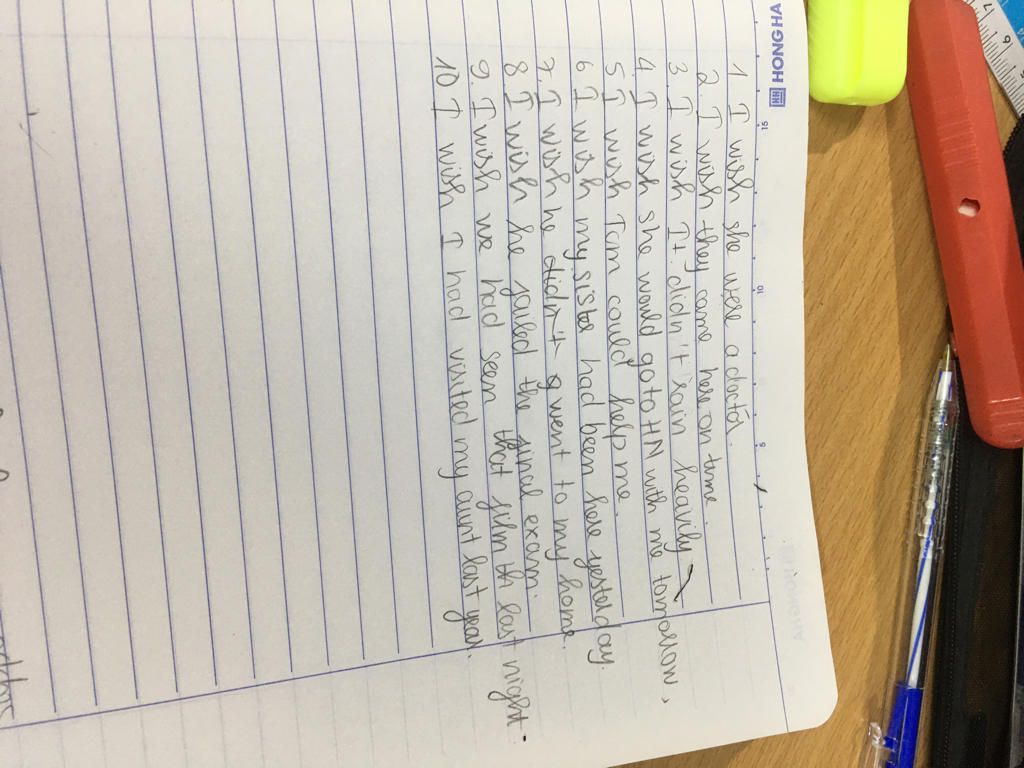 HONG HA
15
10
5
1 I wish she were a doctor.
2. I wish they came here on time.
3. I wish It didn't rain heavily
4. I wish she would go to HN with me tomorrow,
5 I wish Tom could help me.
6 I wish my sister had been here yesterday
7. I wish he didn't went to my home.
8 I wish he failed the final exam.
9. I wish we had seen that film last night.
10 I wish I had visited my aunt last year.